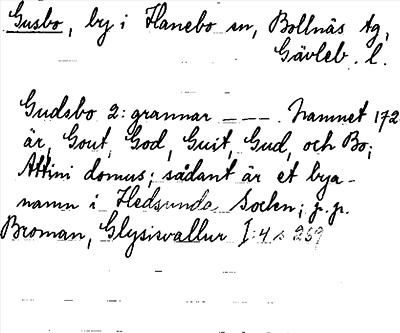 Gusbo, by i Hanebo sn, Bollnäs tg,
Gävleb. l.
Gudsbo 2: grannar ___. Namnet 172
är, Gout, God, Guit, Gud, och Bo;
Attini domus; sådant är et bya-
namn i Hedsunda Sochn; p.p.
Broman, Glysisvallur I:4 s 259